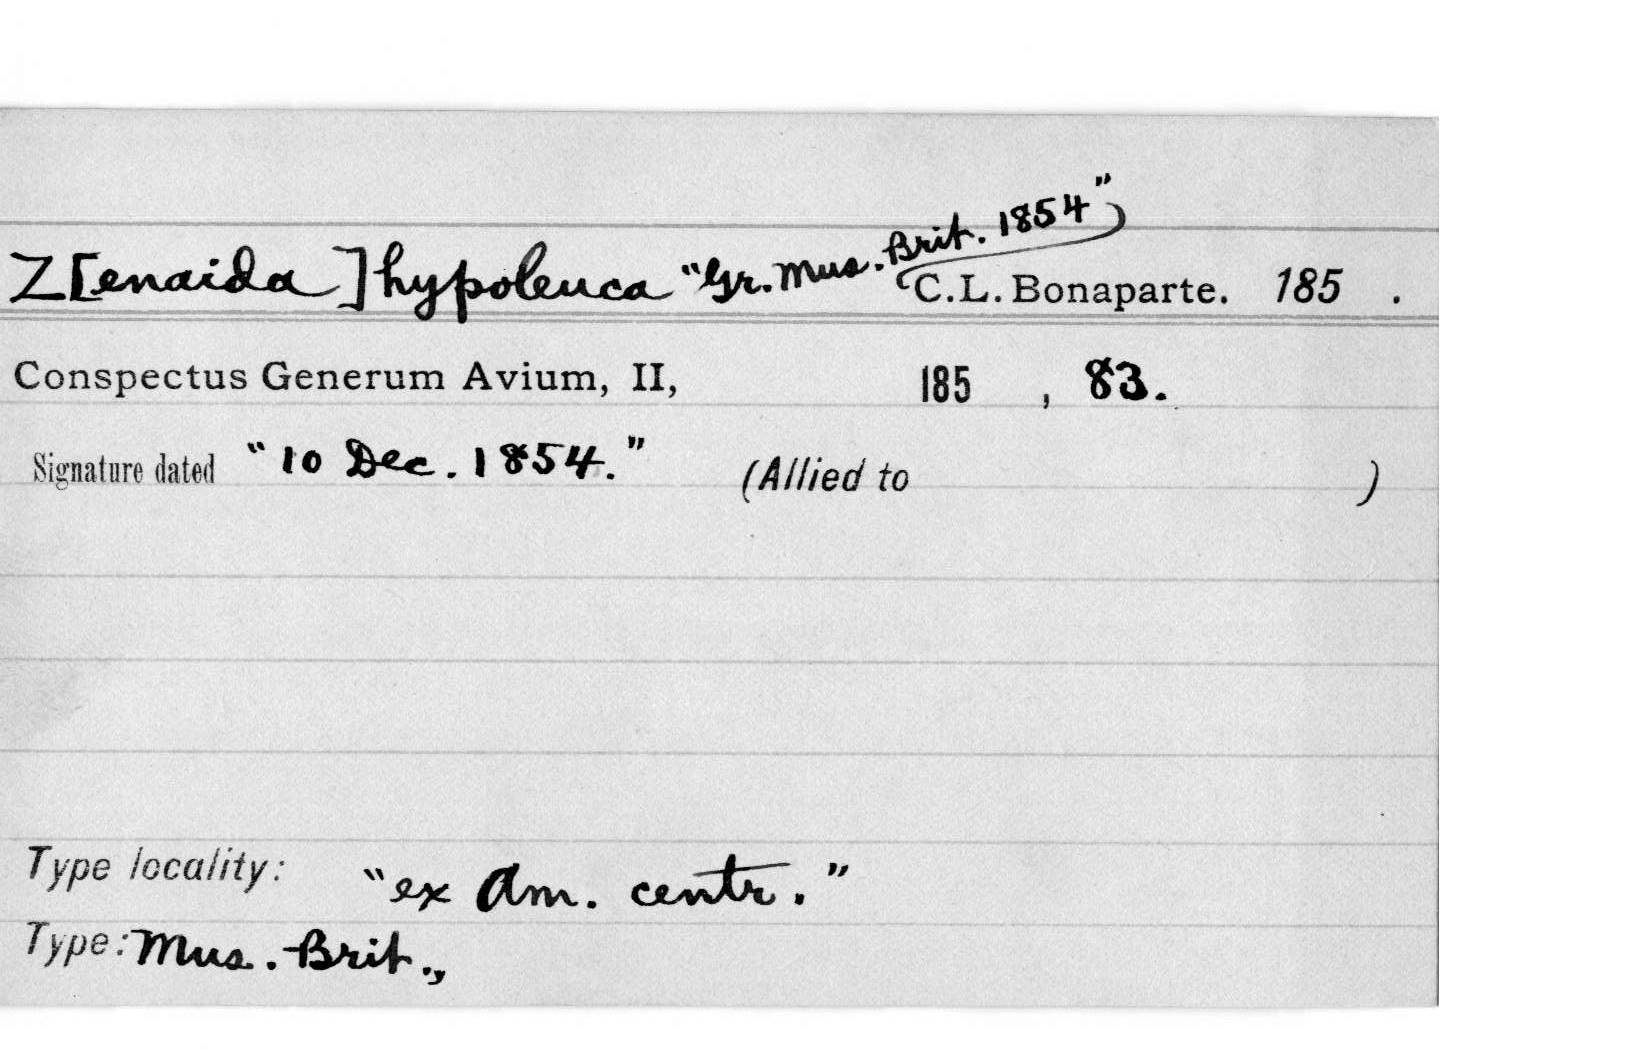 Z[enaida] hypoleuca "Gr. Mus. Brit. 1854" C.L. Bonaparte. 185 .
Conspectus Generum Avium, II, 185 , 83.
Signature dated "10 Dec. 1854." (Allied to )
Type locality: "ex Am. centr."
Type: Mus. Brit.,